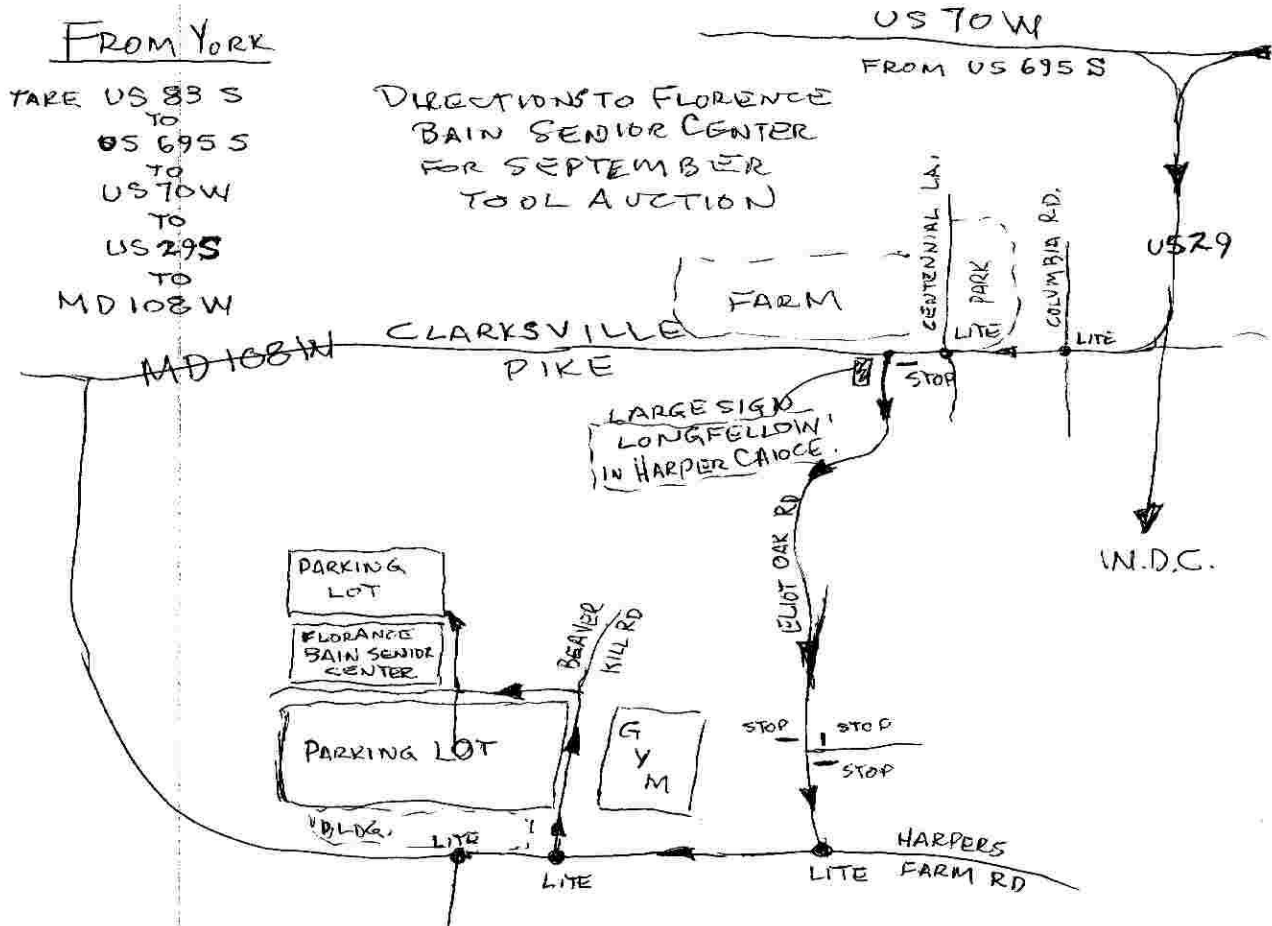 FROM YORK
TAKE US 83 S
TO
US 695 S
TO
US 70W
TO
US 29S
TO
MD 108 W
DIRECTIONS TO FLORENCE
BAIN SENIOR CENTER
FOR SEPTEMBER
TOOL AUCTION
US 70 W
FROM US 695 S
US29
W.D.C.
CENTENNIAL LA.
PARK
COLUMBIA RD.
FARM
LITE
LITE
MD 108 W
CLARKSVILLE
PIKE
STOP
LARGE SIGN
LONGFELLOW
IN HARPER CHOICE.
ELIOT OAK RD
PARKING
LOT
FLORANCE
BAIN SENIOR
CENTER
BEAVER
KILL RD
PARKING LOT
GYM
STOP
STOP
STOP
BLDG.
LITE
LITE
LITE
HARPERS
FARM RD